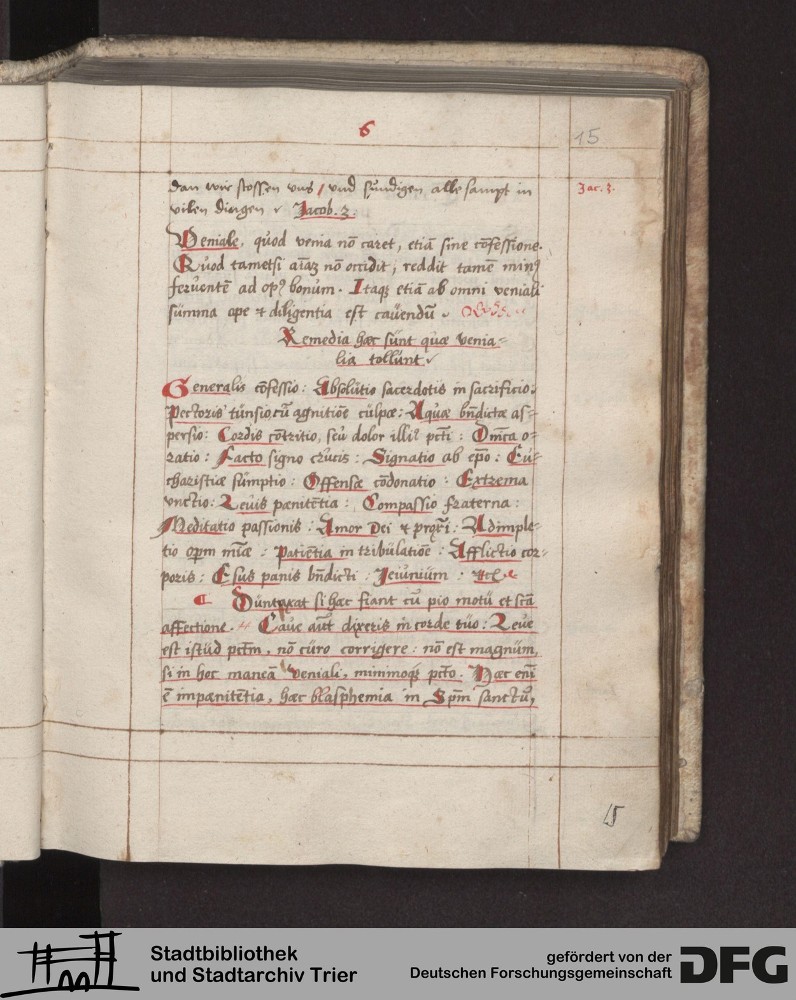 6
15
dan wir stossen vns / vnd sundigen alle sampt in
Jac. 3.
vilen dingen Jacob. 3.
Veniale, quod venia nō caret, etiā sine cōfessione.
Quod tametsi aīaʒ nō occidit, reddit tamē minꝰ
feruentē ad opꝰ bonum. Itaqʒ etiā ab omni veniali
summa ope & diligentia est cauendū
Remedia hæc sunt quæ venia-
lia tollunt
Generalis cōfessio: Absolutio sacerdotis in sacrificio:
Pectoris tunsio cū agnitiōe culpæ: Aquæ bn̄dictæ as-
persio: Cordis cōtritio, seu dolor illiꝰ pcti: Om̄ca o-
ratio: Facto signo crucis: Signatio ab ep̄o: Eu-
charistiæ sumptio: Offensæ cōdonatio: Extrema
vnctio: Leuis pænitētia: Compassio fraterna:
Meditatio passionis: Amor Dei & prox̄i: Adimple-
tio op̄m mīæ: Patiētia in tribulatiōe: Afflictio cor-
poris: Esus panis bn̄dicti: Jeiunium: &c
Duntaxat si hæc fiant cū pio motu et sc̄ā
affectione. Caue aūt dixeris in corde tuo: Leue
est istud pctm̄, nō curo corrigere: nō est magnum,
si in hoc maneā veniali, minimoqʒ pcto. Hæc eni̅
ē impænitētia, hæc blasphemia in Spm̄ sanctū,
15
Stadtbibliothek
und Stadtarchiv Trier
gefördert von der
Deutschen Forschungsgemeinschaft
DFG